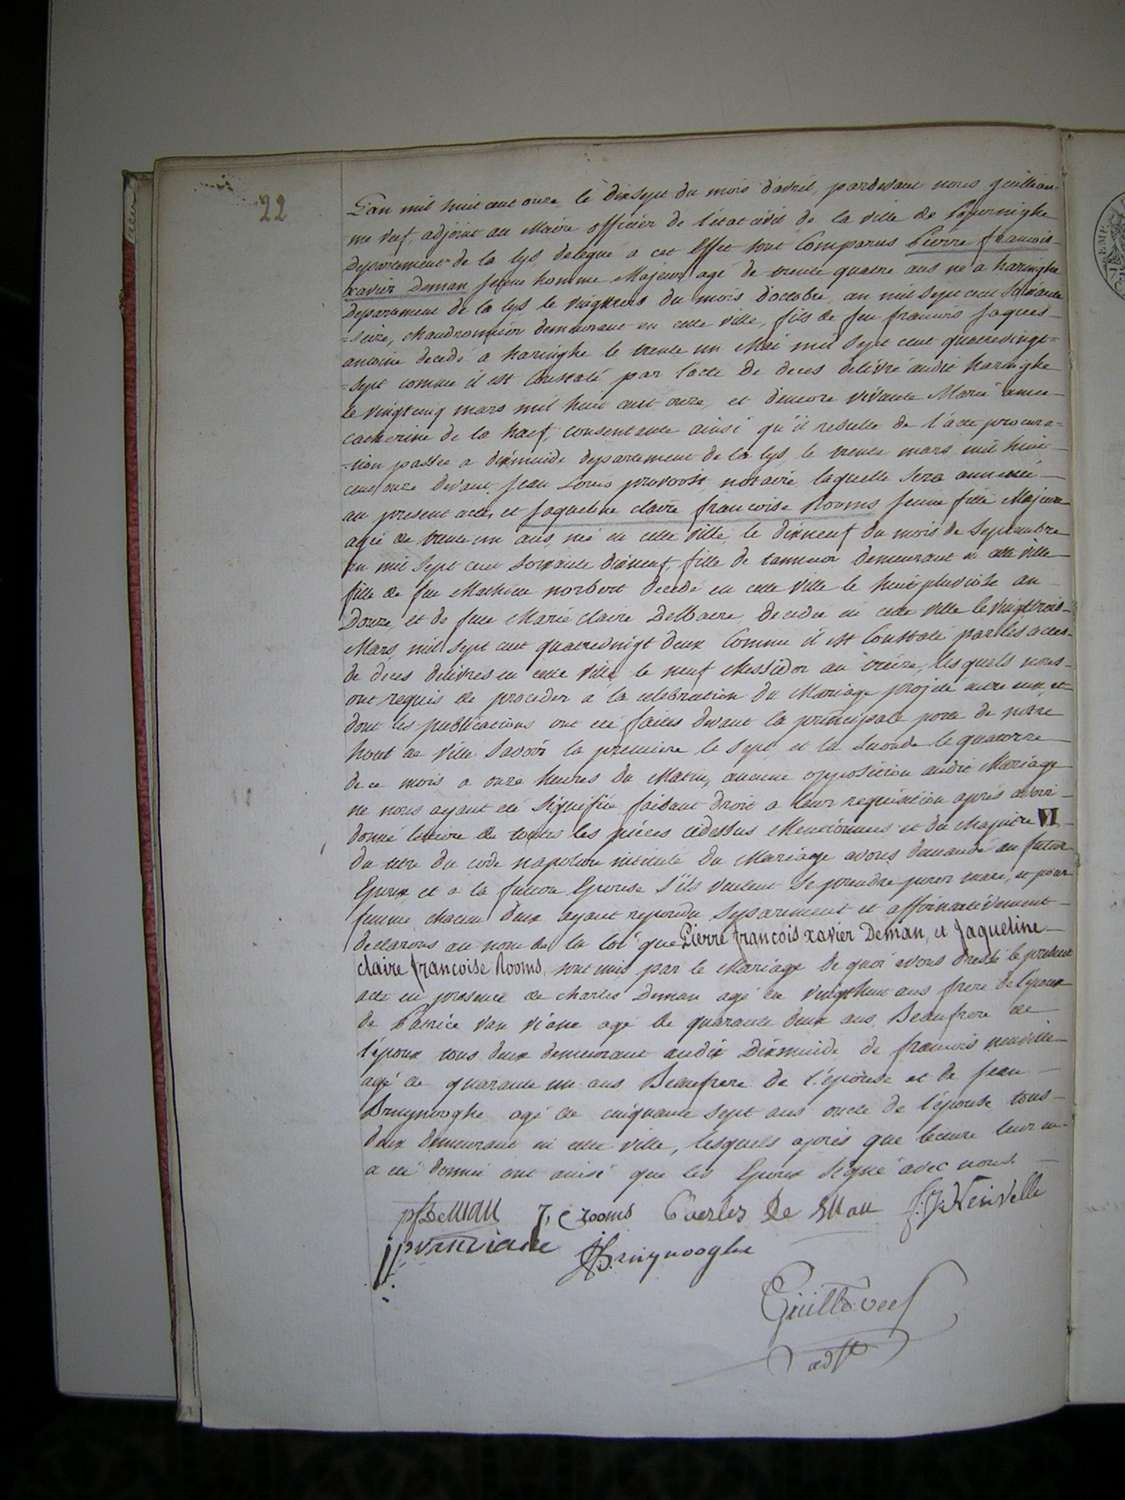 22
L'an mil huit cent onze le dixsept du mois d'avril, pardevant nous guillau-
me verf, adjoint au Maire officier de l'état civil de la ville de
Departement de la lys delegué a cet Effet sont Comparus Pierre francois
xavier Deman jeune homme Majeur agé de trente quatre ans né a haringhe
departement de la lys le vingttrois du mois d'octobre, an mil sept cent Soixante
-seize, chaudronnier demeurant en cette ville, fils de feu francois Jaques
antoine decedé a haringhe le trente un Mai mil sept cent quatrevingt-
-sept comme il est Constaté par l'acte de deces délivré audit haringhe
le vingtcinq mars mil huit cent onze, et d'encore vivante Marie anne
catherine de la haef, consentante ainsi qu'il resulte de l'acte procura-
-tion passée a dixmude departement de la lys le trente mars mil huit
cent onze devant Jean Louis provoost notaire laquelle sera annexée
au present acte, et Jaqueline claire francoise Rooms jeune fille Majeure
agée de trente un ans, née en cette ville le dixneuf du mois de Septembre
an mil sept cent soixante dixneuf, fille de tanneur demeurant en cette ville
fille de feu Mathieu norbert decedé en cette ville le huit pluviose an
Douze et de feue Marie claire Delbaere, decedée en cette ville le vingttrois
Mars mil sept cent quatrevingt deux Comme il est Constaté par les actes
de deces délivrés en cette ville le neuf Messidor an treize, lesquels nous
ont requis de proceder a la celebration du Mariage projeté entre eux, et
dont les publications ont été faites devant la principale porte de notre
hotel de ville Savoir la premiere le sept et la seconde le quatorze
de ce mois a onze heures du Matin, aucune opposition audit Mariage
ne nous ayant été signifiée faisant droit a leur requisition après avoir
donné lecture de toutes les pièces cidessus Mentionnées et du chapitre VI
du titre du code napoleon intitulé du Mariage avons demandé au futur
Epoux et a la future Epouse s'ils veulent se prendre pour mari, et pour
femme chacun deux ayant repondu Separement et affirmativement
declarons au nom de la loi que Pierre francois xavier Deman, et Jaqueline
claire francoise Rooms, sont unis par le Mariage de quoi avons dressé le présent
acte en presence de charles Deman agé de vingthuit ans frere de l'epoux
de Patrice van viane agé de quarante deux ans Beaufrere de
l'époux tous deux demeurant audit Dixmude, de francois neuville
agé de quarante un ans Beaufrere de l'épouse et de Jean
Bruynooghe agé de cinquante sept ans oncle de l'épouse tous
deux demeurant en cette ville, lesquels après que lecture leur en
a été donné ont avisé que les Epoux signé avec nous
pf Deman J, C rooms Caerles De Man f: J Neuvelle
p van viane J Bruynooghe
Guill verf
adt